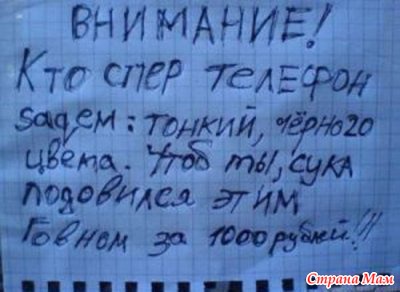 ВНИМАНИЕ!
Кто спер телефон
sagem: тонкий, чёрного
цвета. Чтоб ты, сука
подовился этим
Говном за 1000 рублей!!!
Страна Мам